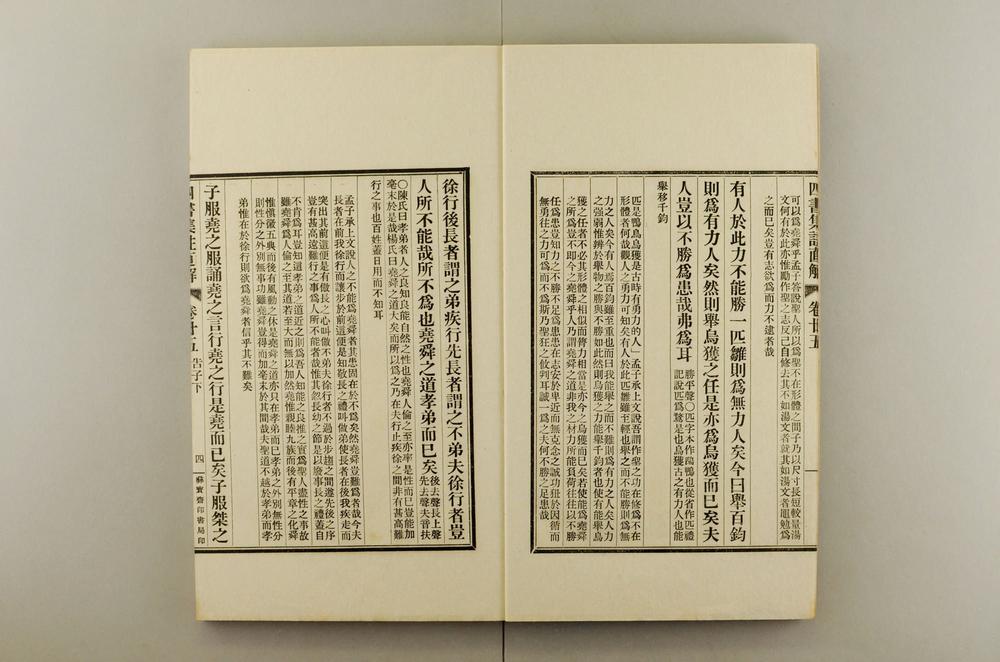 四書集註直解 卷廿五
可以爲堯舜乎孟子答說聖人所以爲聖不在形體之間子乃以尺寸長短較量湯
文何有於此亦惟勵作聖之志反己自修去其不如湯文者就其如湯文者黽勉爲
之而已矣豈有志欲爲而力不逮者哉
有人於此力不能勝一匹雛則爲無力人矣今曰舉百鈞
則爲有力人矣然則舉烏獲之任是亦爲烏獲而已矣夫
人豈以不勝爲患哉弗爲耳
勝平聲〇匹字本作鴄鴨也從省作匹禮
記說匹爲鶩是也烏獲古之有力人也能
舉移千鈞
匹是鴨烏烏獲是古時有勇力的人孟子承上文說吾謂作聖之功在修爲不在
形體者何哉觀人之勇力可知矣有人於此匹雛雖至輕也舉之而不能勝則爲無
力之人矣今有人焉百鈞雖至重也而曰我能舉之而不難則爲有力之人矣人力
之强弱惟辨於舉物之勝與不勝如此然則烏獲之力能舉千鈞者也使有能舉烏
獲之任者不必其形體之相似而膂力相當是亦今之烏獲而已矣若使能爲堯舜
之所爲豈不即今之堯舜乎人乃謂堯舜之道非我之材力所能負荷往往以不勝
任爲患豈知力之不勝不足爲患患在志安於卑近而無克念之誠功狃於因循而
無勇往之力可爲而不爲斯乃聖狂之攸判耳誠一爲之夫何不勝之足患哉
徐行後長者謂之弟疾行先長者謂之不弟夫徐行者豈
人所不能哉所不爲也堯舜之道孝弟而已矣
後去聲長上聲
先去聲夫音扶
〇陳氏曰孝弟者人之良知良能自然之性也堯舜人倫之至亦率是性而已豈能加
毫末於是哉楊氏曰堯舜之道大矣而所以爲之乃在夫行止疾徐之間非有甚高難
行之事也百姓蓋日用而不知耳
孟子承上文說人之不能爲堯舜者其患固在於不爲矣然堯舜豈難爲者哉今夫
長者在前我徐行而讓步於前這便是知敬長之禮叫做弟使長者在後我疾走而
突出其前這便是有傲長之心叫做不弟夫徐行者不過於步趨之間遜先後之序
豈有甚高遠難行之事爲人所不能者哉惟其忽長幼之節是以廢事長之禮蓋自
不肯爲耳豈知這孝弟之道近之則爲吾人知能之良推之實爲聖人盡性之事故
雖堯舜爲人倫之至其道若至大而無以加然堯惟親睦九族而後有平章之化舜
惟愼徽五典而後有風動之休是堯舜之道亦只在孝弟而已孝弟之外別無性分
則性分之外別無事功雖堯舜豈得而加毫末於其間哉夫聖道不越於孝弟而孝
弟惟在於徐行則欲爲堯舜者信乎其不難矣
子服堯之服誦堯之言行堯之行是堯而已矣子服桀之
四書集註直解 卷廿五 告子下 四 蘇寶齋印書局印